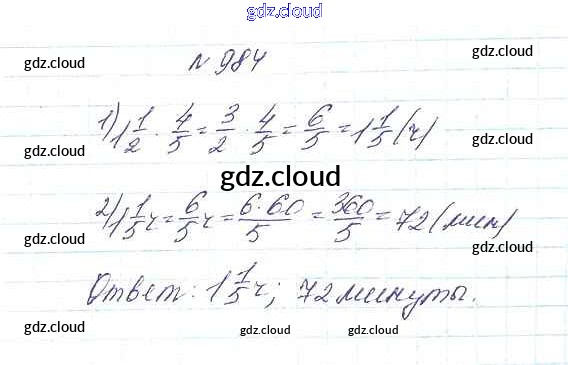 gdz.cloud
gdz.cloud
№ 984 gdz.cloud
gdz.cloud
1) 1 1/2 · 4/5 = 3/2 · 4/5 = 6/5 = 1 1/5 (ч)
gdz.cloud gdz.cloud
gdz.cloud
2) 1 1/5 ч = 6/5 ч = 6·60/5 = 360/5 = 72 (мин)
gdz.cloud gdz.cloud
Ответ: 1 1/5 ч; 72 минуты.
gdz.cloud gdz.cloud gdz.cloud